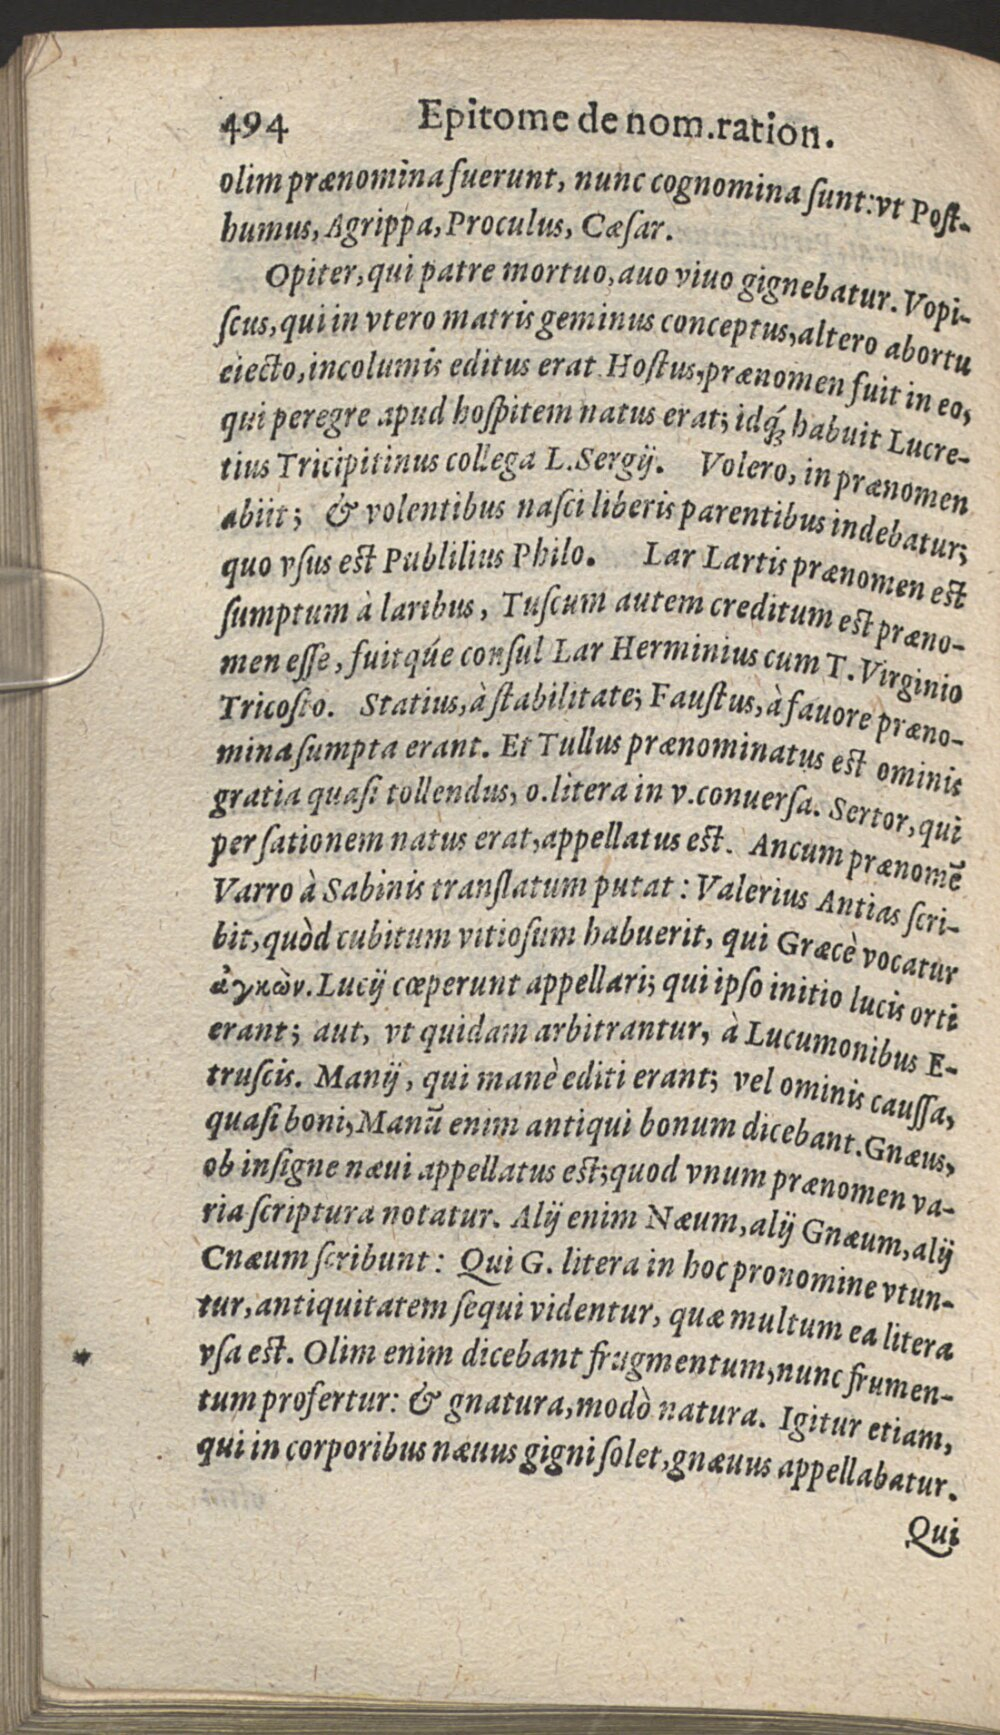 494 Epitome de nom.ration.
olim prænomina fuerunt, nunc cognomina ſunt: vt Poſt-
humus, Agrippa, Proculus, Cæſar.
Opiter, qui patre mortuo, auo viuo gignebatur. Vopi-
ſcus, qui in vtero matris geminus conceptus, altero abortu
eiecto, incolumis editus erat. Hoſtus, prænomen fuit in eo,
qui peregre apud hoſpitem natus erat; idq́; habuit Lucre-
tius Tricipitinus collega L. Sergij. Volero, in prænomen
abiit; & volentibus naſci liberis parentibus indebatur;
quo vſus eſt Publilius Philo. Lar Lartis prænomen eſt
ſumptum à laribus, Tuſcum autem creditum eſt præno-
men eſſe, fuitqúe conſul Lar Herminius cum T. Virginio
Tricoſto. Statius, à ſtabilitate; Fauſtus, à fauore præno-
mina ſumpta erant. Et Tullus prænominatus eſt ominis
gratia quaſi tollendus, o. litera in v. conuerſa. Sertor, qui
per ſationem natus erat, appellatus eſt. Ancum prænomē
Varro à Sabinis tranſlatum putat: Valerius Antias ſcri-
bit, quòd cubitum vitioſum habuerit, qui Græcè vocatur
ἀγκὼν. Lucij cœperunt appellari; qui ipſo initio lucis orti
erant; aut, vt quidam arbitrantur, à Lucumonibus E-
truſcis. Manij, qui manè editi erant; vel ominis cauſſa,
quaſi boni, Manū enim antiqui bonum dicebant. Gnæus,
ob inſigne næui appellatus eſt; quod vnum prænomen va-
ria ſcriptura notatur. Alij enim Næum, alij Gnæum, alij
Cnæum ſcribunt: Qui G. litera in hoc pronomine vtun-
tur, antiquitatem ſequi videntur, quæ multum ea litera
vſa eſt. Olim enim dicebant frugmentum, nunc frumen-
tum profertur: & gnatura, modò natura. Igitur etiam,
qui in corporibus næuus gigni ſolet, gnæuus appellabatur.
Qui